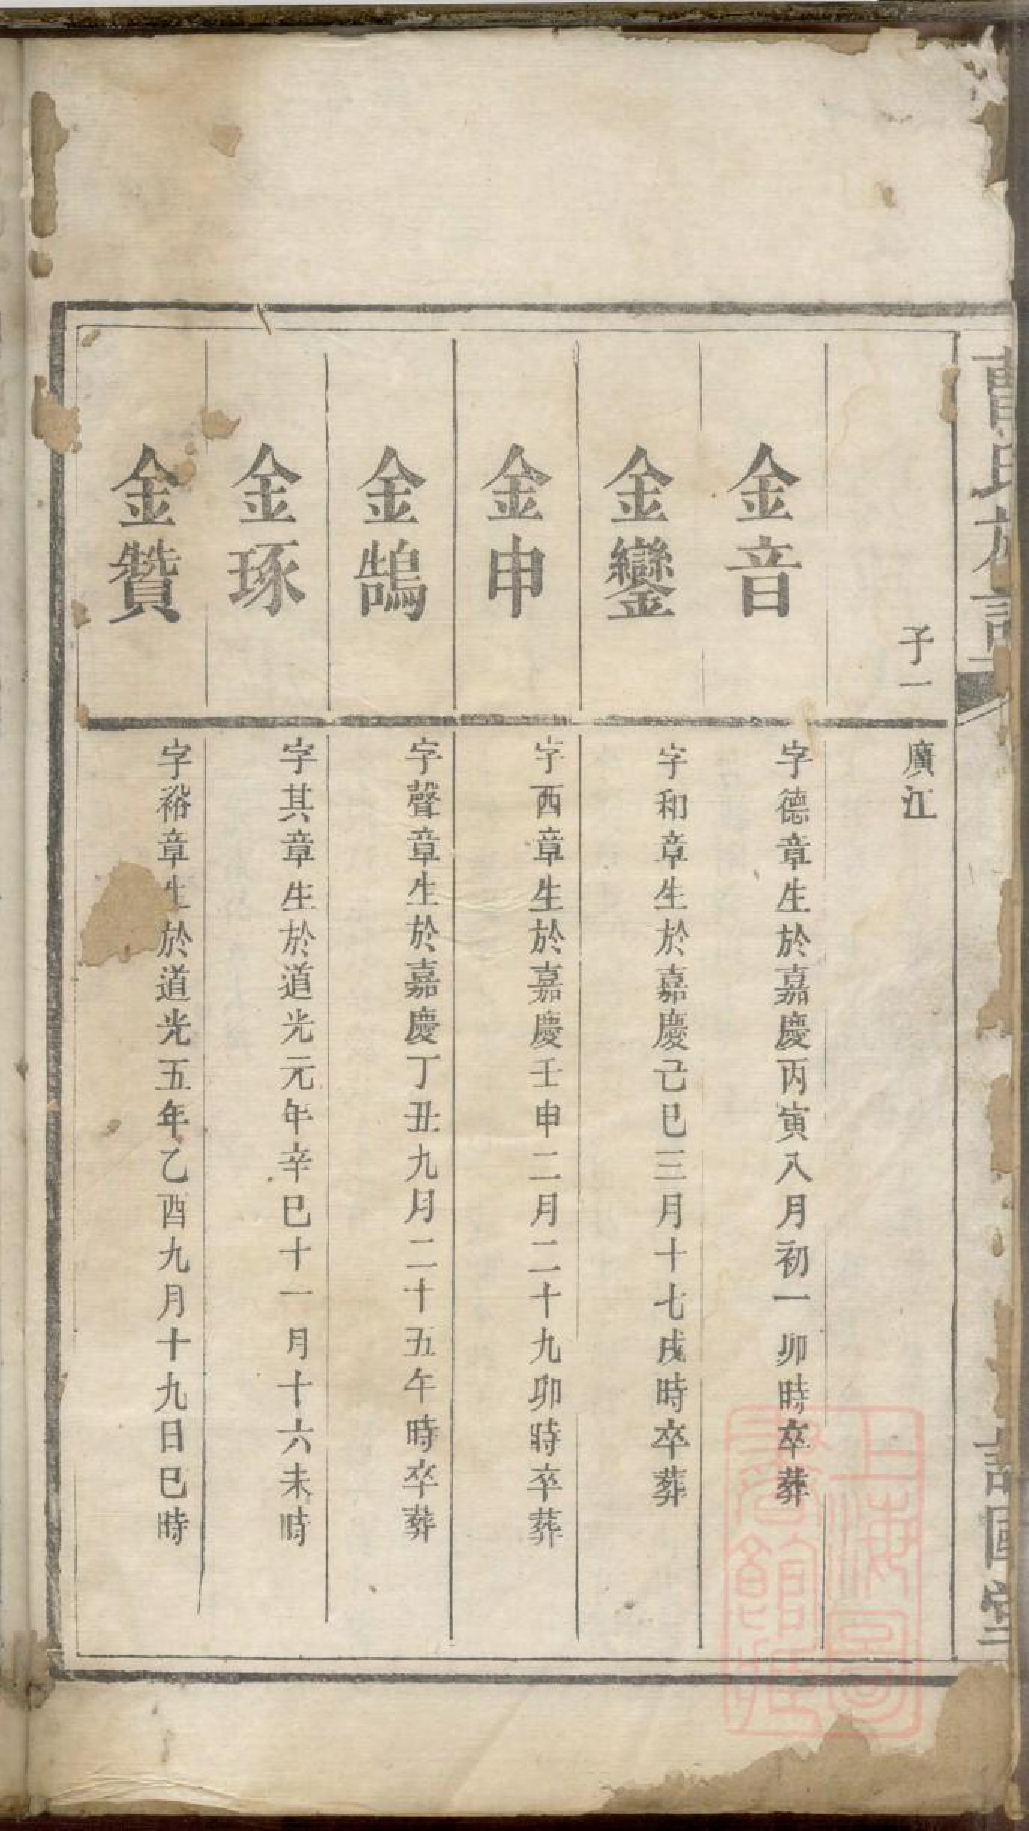 曹氏族譜
子一
廣江
金音
字德章生於嘉慶丙寅八月初一卯時卒葬
金鑾
字和章生於嘉慶己巳三月十七戌時卒葬
金申
字西章生於嘉慶壬申二月二十九卯時卒葬
金鵠
字聲章生於嘉慶丁丑九月二十五午時卒葬
金琢
字其章生於道光元年辛巳十一月十六未時
金贊
字裕章生於道光五年乙酉九月十九日巳時
上海圖書館藏